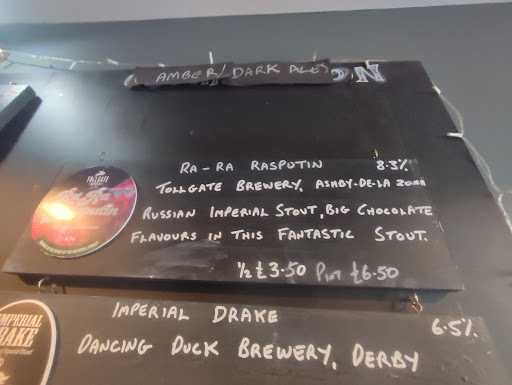 AMBER/DARK ALES
RA-RA RASPUTIN 8.3%
TOLLGATE BREWERY, ASHBY-DE-LA ZOUCH
RUSSIAN IMPERIAL STOUT, BIG CHOCOLATE
FLAVOURS IN THIS FANTASTIC STOUT.
½ £3.50 PINT £6.50
TOLLGATE
Ra-Ra
Rasputin
IMPERIAL DRAKE 6.5%
DANCING DUCK BREWERY, DERBY
IMPERIAL
DRAKE